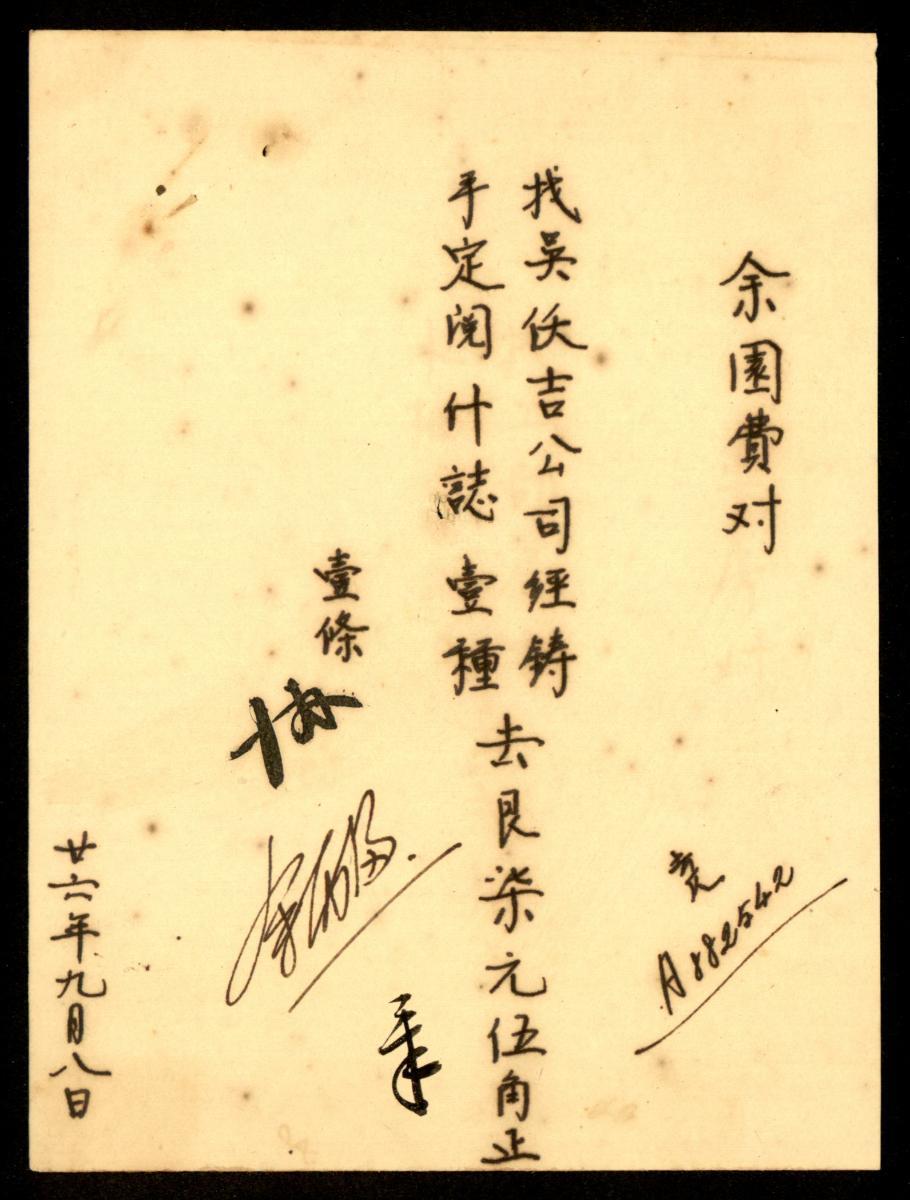 余園費对
找吳仸吉公司經鋳
手定閱什誌壹種
去艮柒元伍角正
壹條
廿六年九月八日
A882542